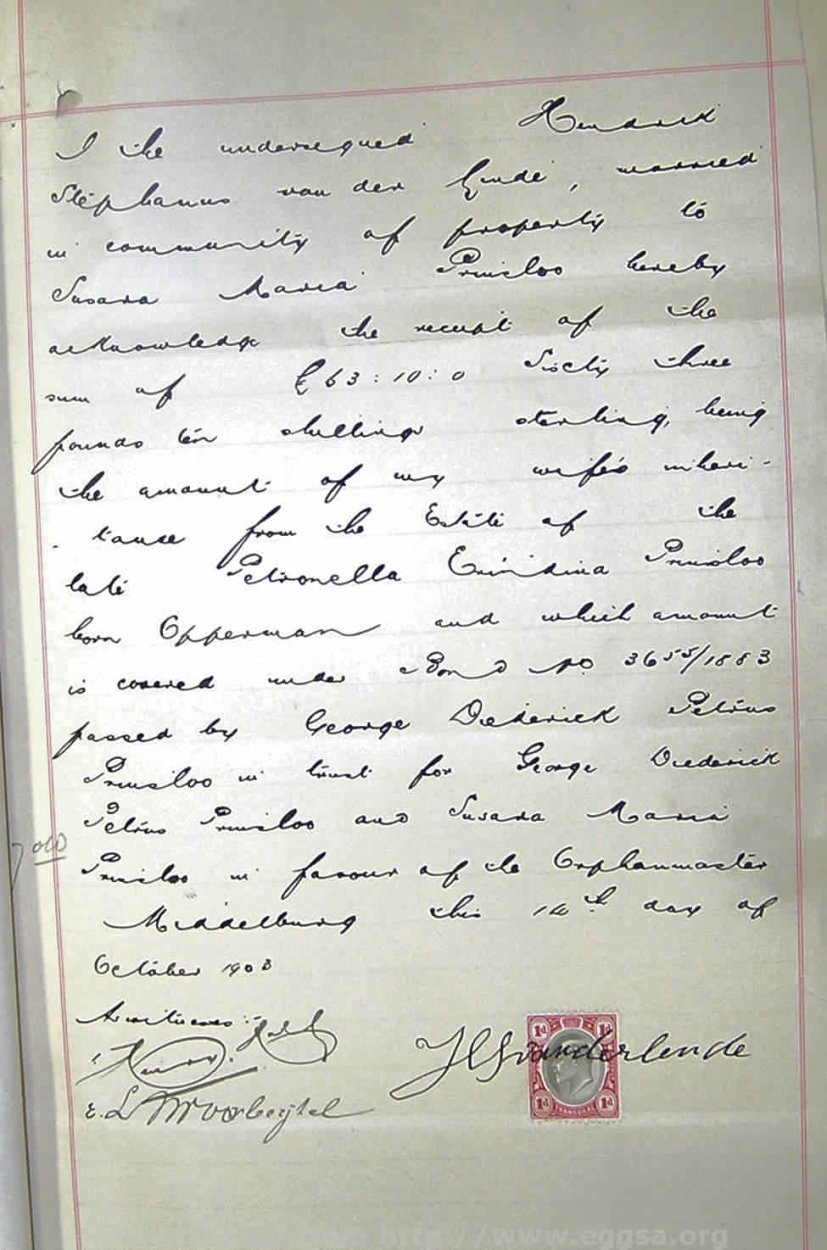 I the undersigned Hendrik
Stephanus van der Linde, married
in community of property to
Susara Maria Prinsloo hereby
acknowledge the receipt of the
sum of £63:10:0 Sixty three
pounds ten shillings sterling, being
the amount of my wife's inheri-
-tance from the Estate of the
late Petronella Prinsloo
born Opperman and which amount
is covered under Bond No. 3655/1883
passed by George Diederick Petrus
Prinsloo in trust for George Diederick
Petrus Prinsloo and Susara Maria
Prinsloo in favour of the Orphanmaster
Middelburg this 14th day of
October 1903
As witnesses:
HS vanderLinde
1d 1d
1d 1d
TRANSVAAL
http://www.eggsa.org